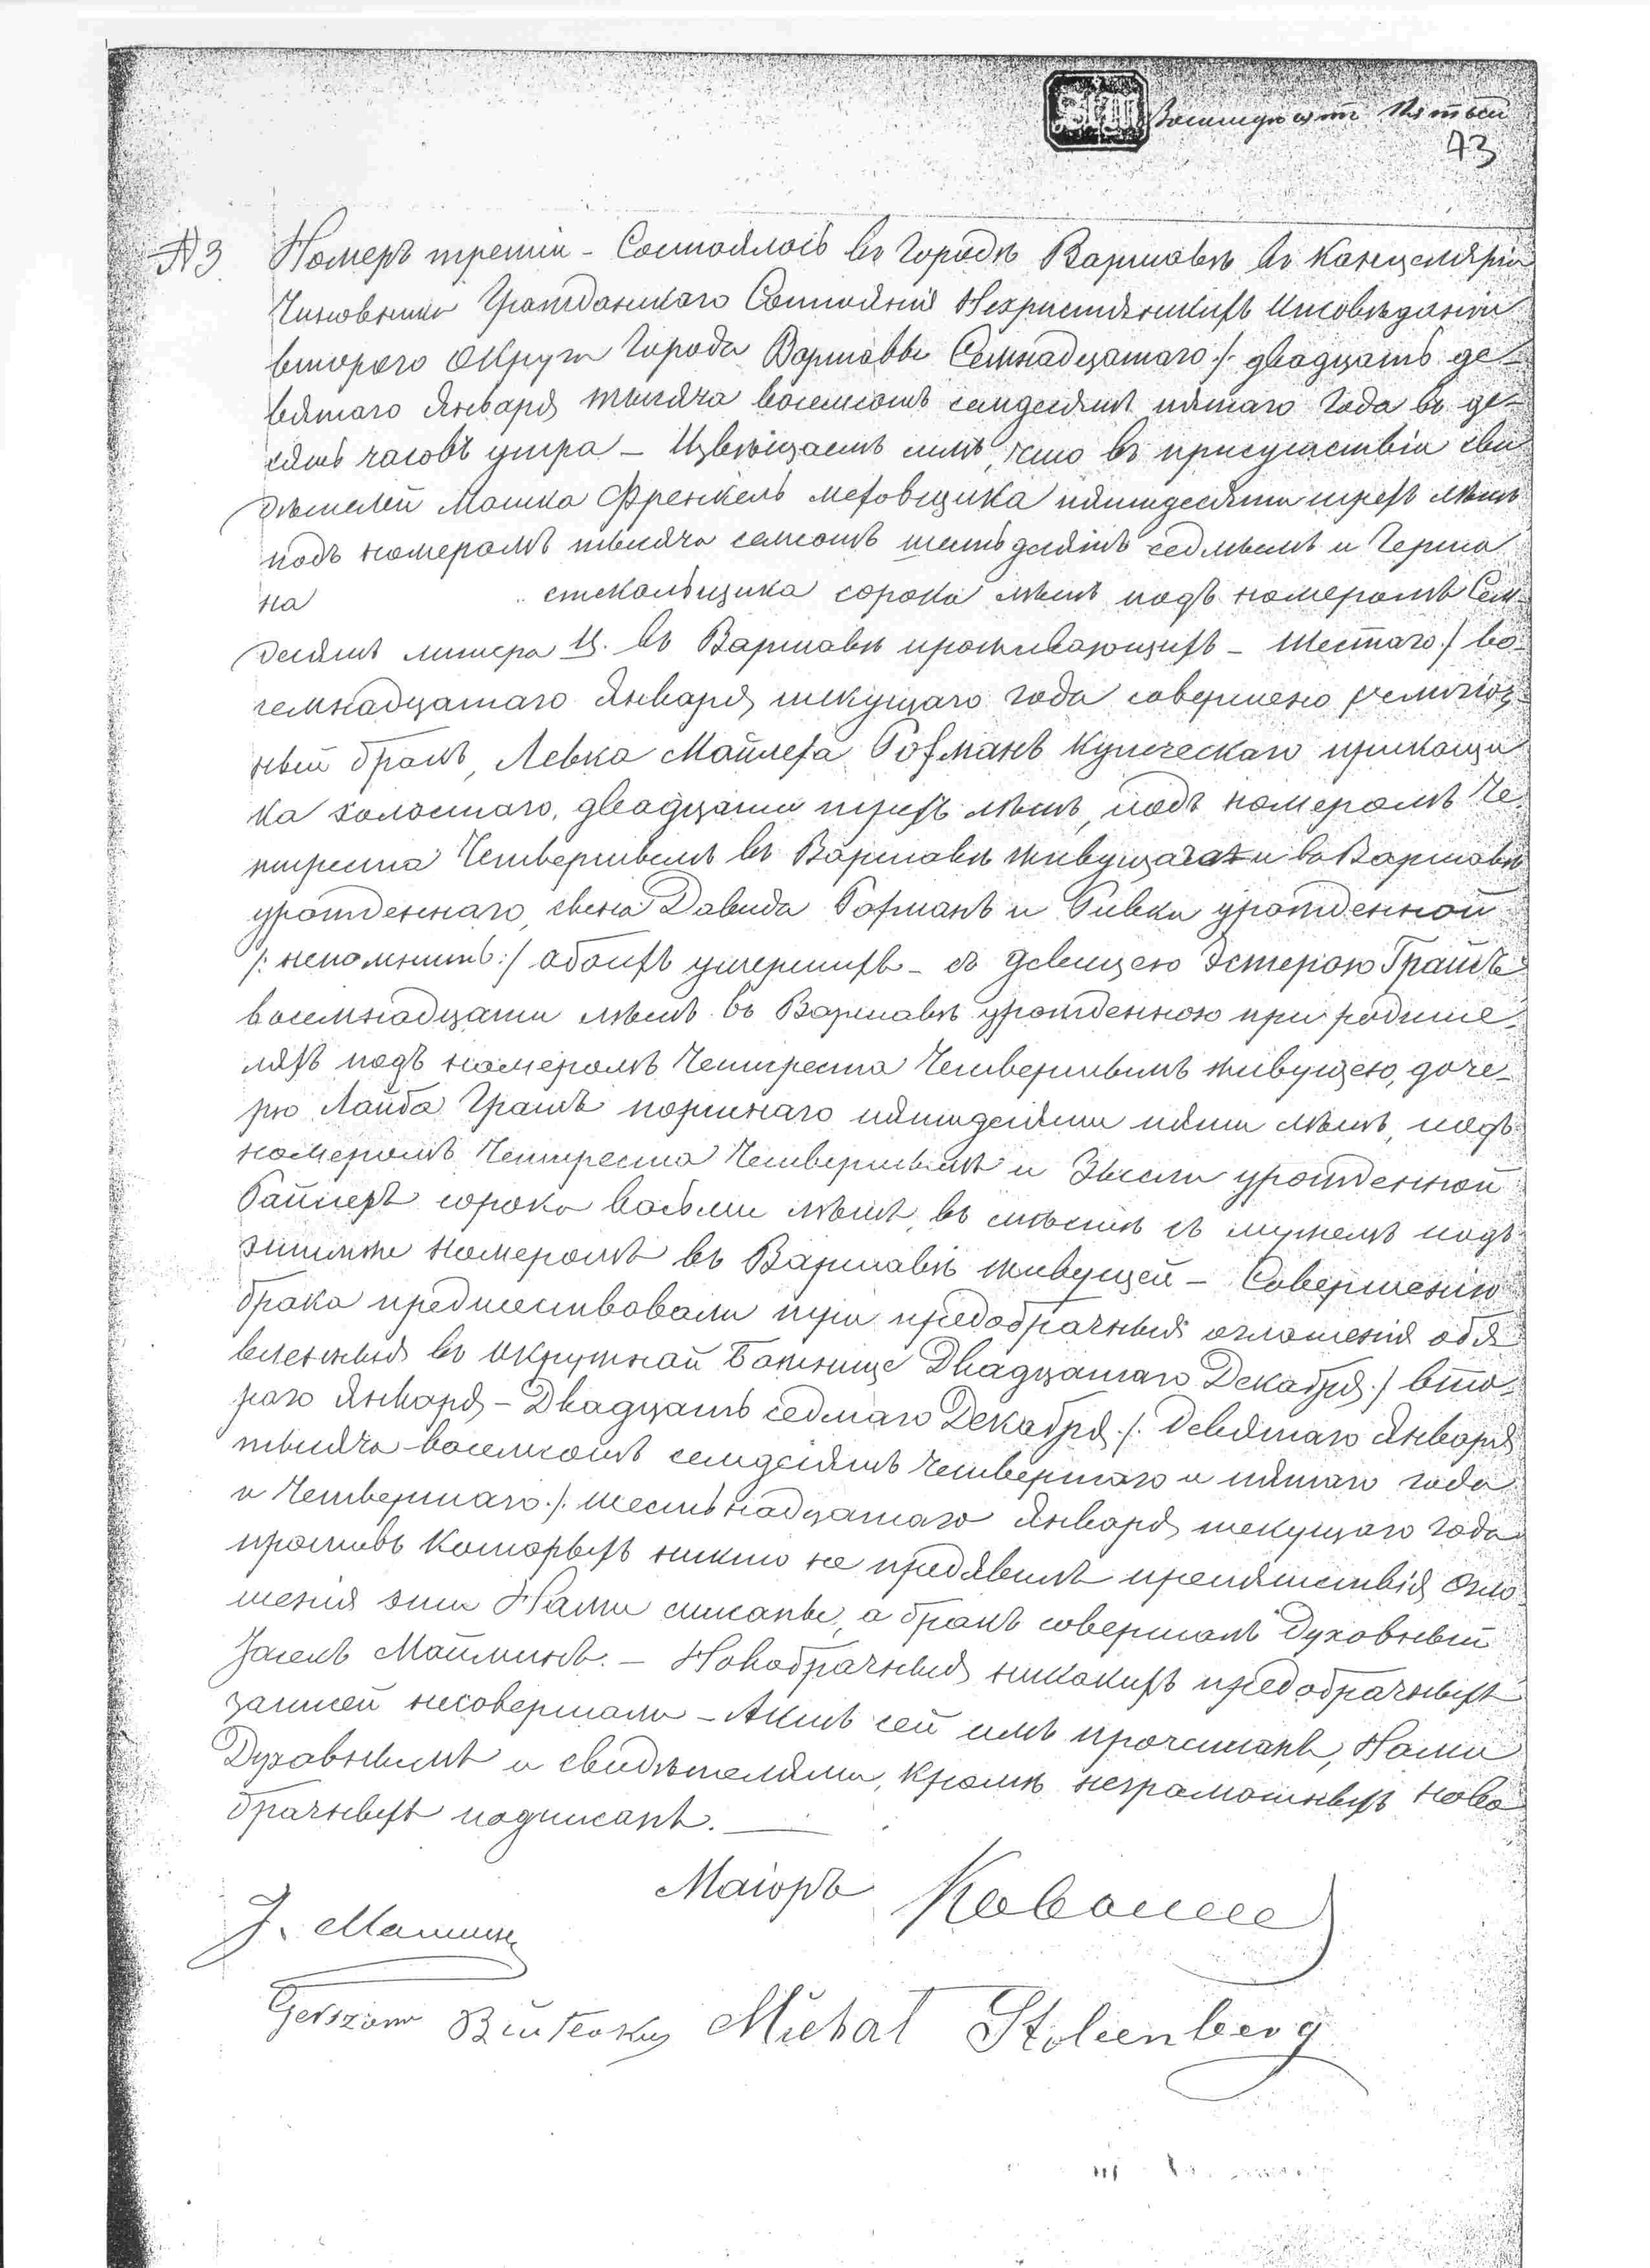 Восемдесят Пятый
73
№ 3
Номеръ третiй - Состоялось въ Городѣ Варшавѣ въ Канцелярiи
Чиновника Гражданскаго Состоянiя Нехристiанскихъ Исповѣданiй
втораго Округа Города Варшавы Семнадцатаго /: двадцать де-
вятаго Января тысяча восемсотъ семдесятъ пятаго года въ де-
сять часовъ утра - Извѣщаемъ симъ, что въ присутствiи сви
дѣтелей Мошка Френкель мехов­щика пятидесяти трехъ лѣтъ
подъ номеромъ тысяча семсотъ шестьдесятъ седмымъ и Герша
на стекольщика сорока лѣтъ подъ номеромъ Сем-
десятъ литера Ц. въ Варшавѣ проживающихъ - Шестаго / во-
семнадцатаго Января текущаго года совершено религiоз-
ный бракъ, Левка Майлеха Гофманъ Купеческаго прикащи
ка холостаго, двадцати трехъ лѣтъ, подъ номеромъ Че-
тыреста Четвертымъ въ Варшавѣ живущаго и въ Варшавѣ
урожденнаго, сына Давида Гофманъ и Ривки урожденной
/: непомнитъ :/ обоихъ умершихъ - съ девицею Эстерою
восемнадцати лѣтъ въ Варшавѣ урожденною при родите-
ляхъ подъ номеромъ Четыреста Четвертымъ живущею, доче-
рю Лайба портнаго пятидесяти пяти лѣтъ, подъ
номеромъ Четыреста Четвертымъ и Зысли урожденной
сорока восьми лѣтъ, въ мѣстѣ съ мужемъ подъ
этимже номеромъ въ Варшавѣ живущей - Совершенiю
брака предшествовали три предобрачныя оглашенiя объя
вленныя въ окружной Божнице Двадцатаго Декабря / вто-
раго Января - Двадцать седмаго Декабря /: Девятаго Января
тысяча восемсотъ семдесятъ четвертаго и пятаго года
и Четвертаго /: шестьнадцатаго Января текущаго года
противъ которыхъ никто не предявилъ препятствiя Огла
шенiя эти Нами списаны, а бракъ совершалъ Духовный
Майминъ. - Новобрачныя никакихъ предобрачныхъ
записей несовершали - Актъ сей имъ прочитанъ, Нами
Духовнымъ и свидѣтелями, кромѣ неграмотныхъ ново
брачныхъ подписанъ.
Маiоръ
Gerszon Michał